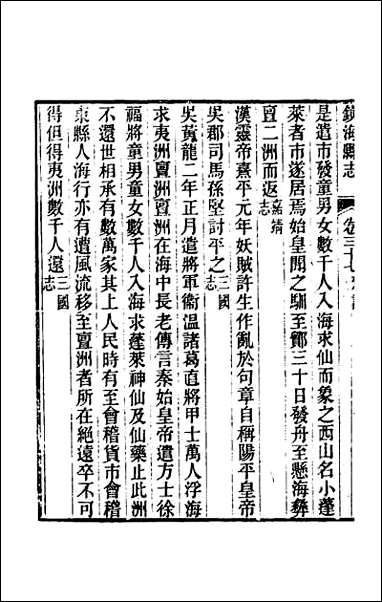 鎮海縣志 卷三十七
是遣市發童男女數千人入海求仙而象之西山名小蓬
萊者市遂居焉始皇聞之驅至鄮三十日發舟至懸海彝
亶二洲而返嘉靖志
漢靈帝熹平元年妖賊許生作亂於句章自稱陽平皇帝
吳郡司馬孫堅討平之三國志
吳黃龍二年正月遣將軍衞溫諸葛直將甲士萬人浮海
求夷洲亶洲亶洲在海中長老傳言秦始皇帝遣方士徐
福將童男童女數千人入海求蓬萊神仙及仙藥止此洲
不還世相承有數萬家其上人民時有至會稽貨市會稽
東縣人海行亦有遭風流移至亶洲者所在絕遠卒不可
得但得夷洲數千人還三國志